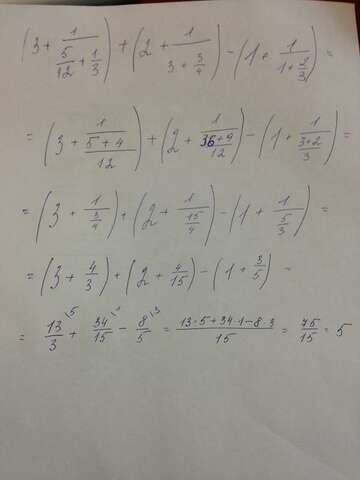 (3 + 1/(5/12 + 1/3)) + (2 + 1/(3 + 3/4)) - (1 + 1/(1 + 2/3)) =
= (3 + 1/((5+4)/12)) + (2 + 1/((36+9)/12)) - (1 + 1/((3+2)/3)) =
= (3 + 1/(3/4)) + (2 + 1/(15/4)) - (1 + 1/(5/3)) =
= (3 + 4/3) + (2 + 4/15) - (1 + 3/5) =
= 13/3 \5 + 34/15 \1 - 8/5 \3 = (13·5+34·1-8·3)/15 = 75/15 = 5